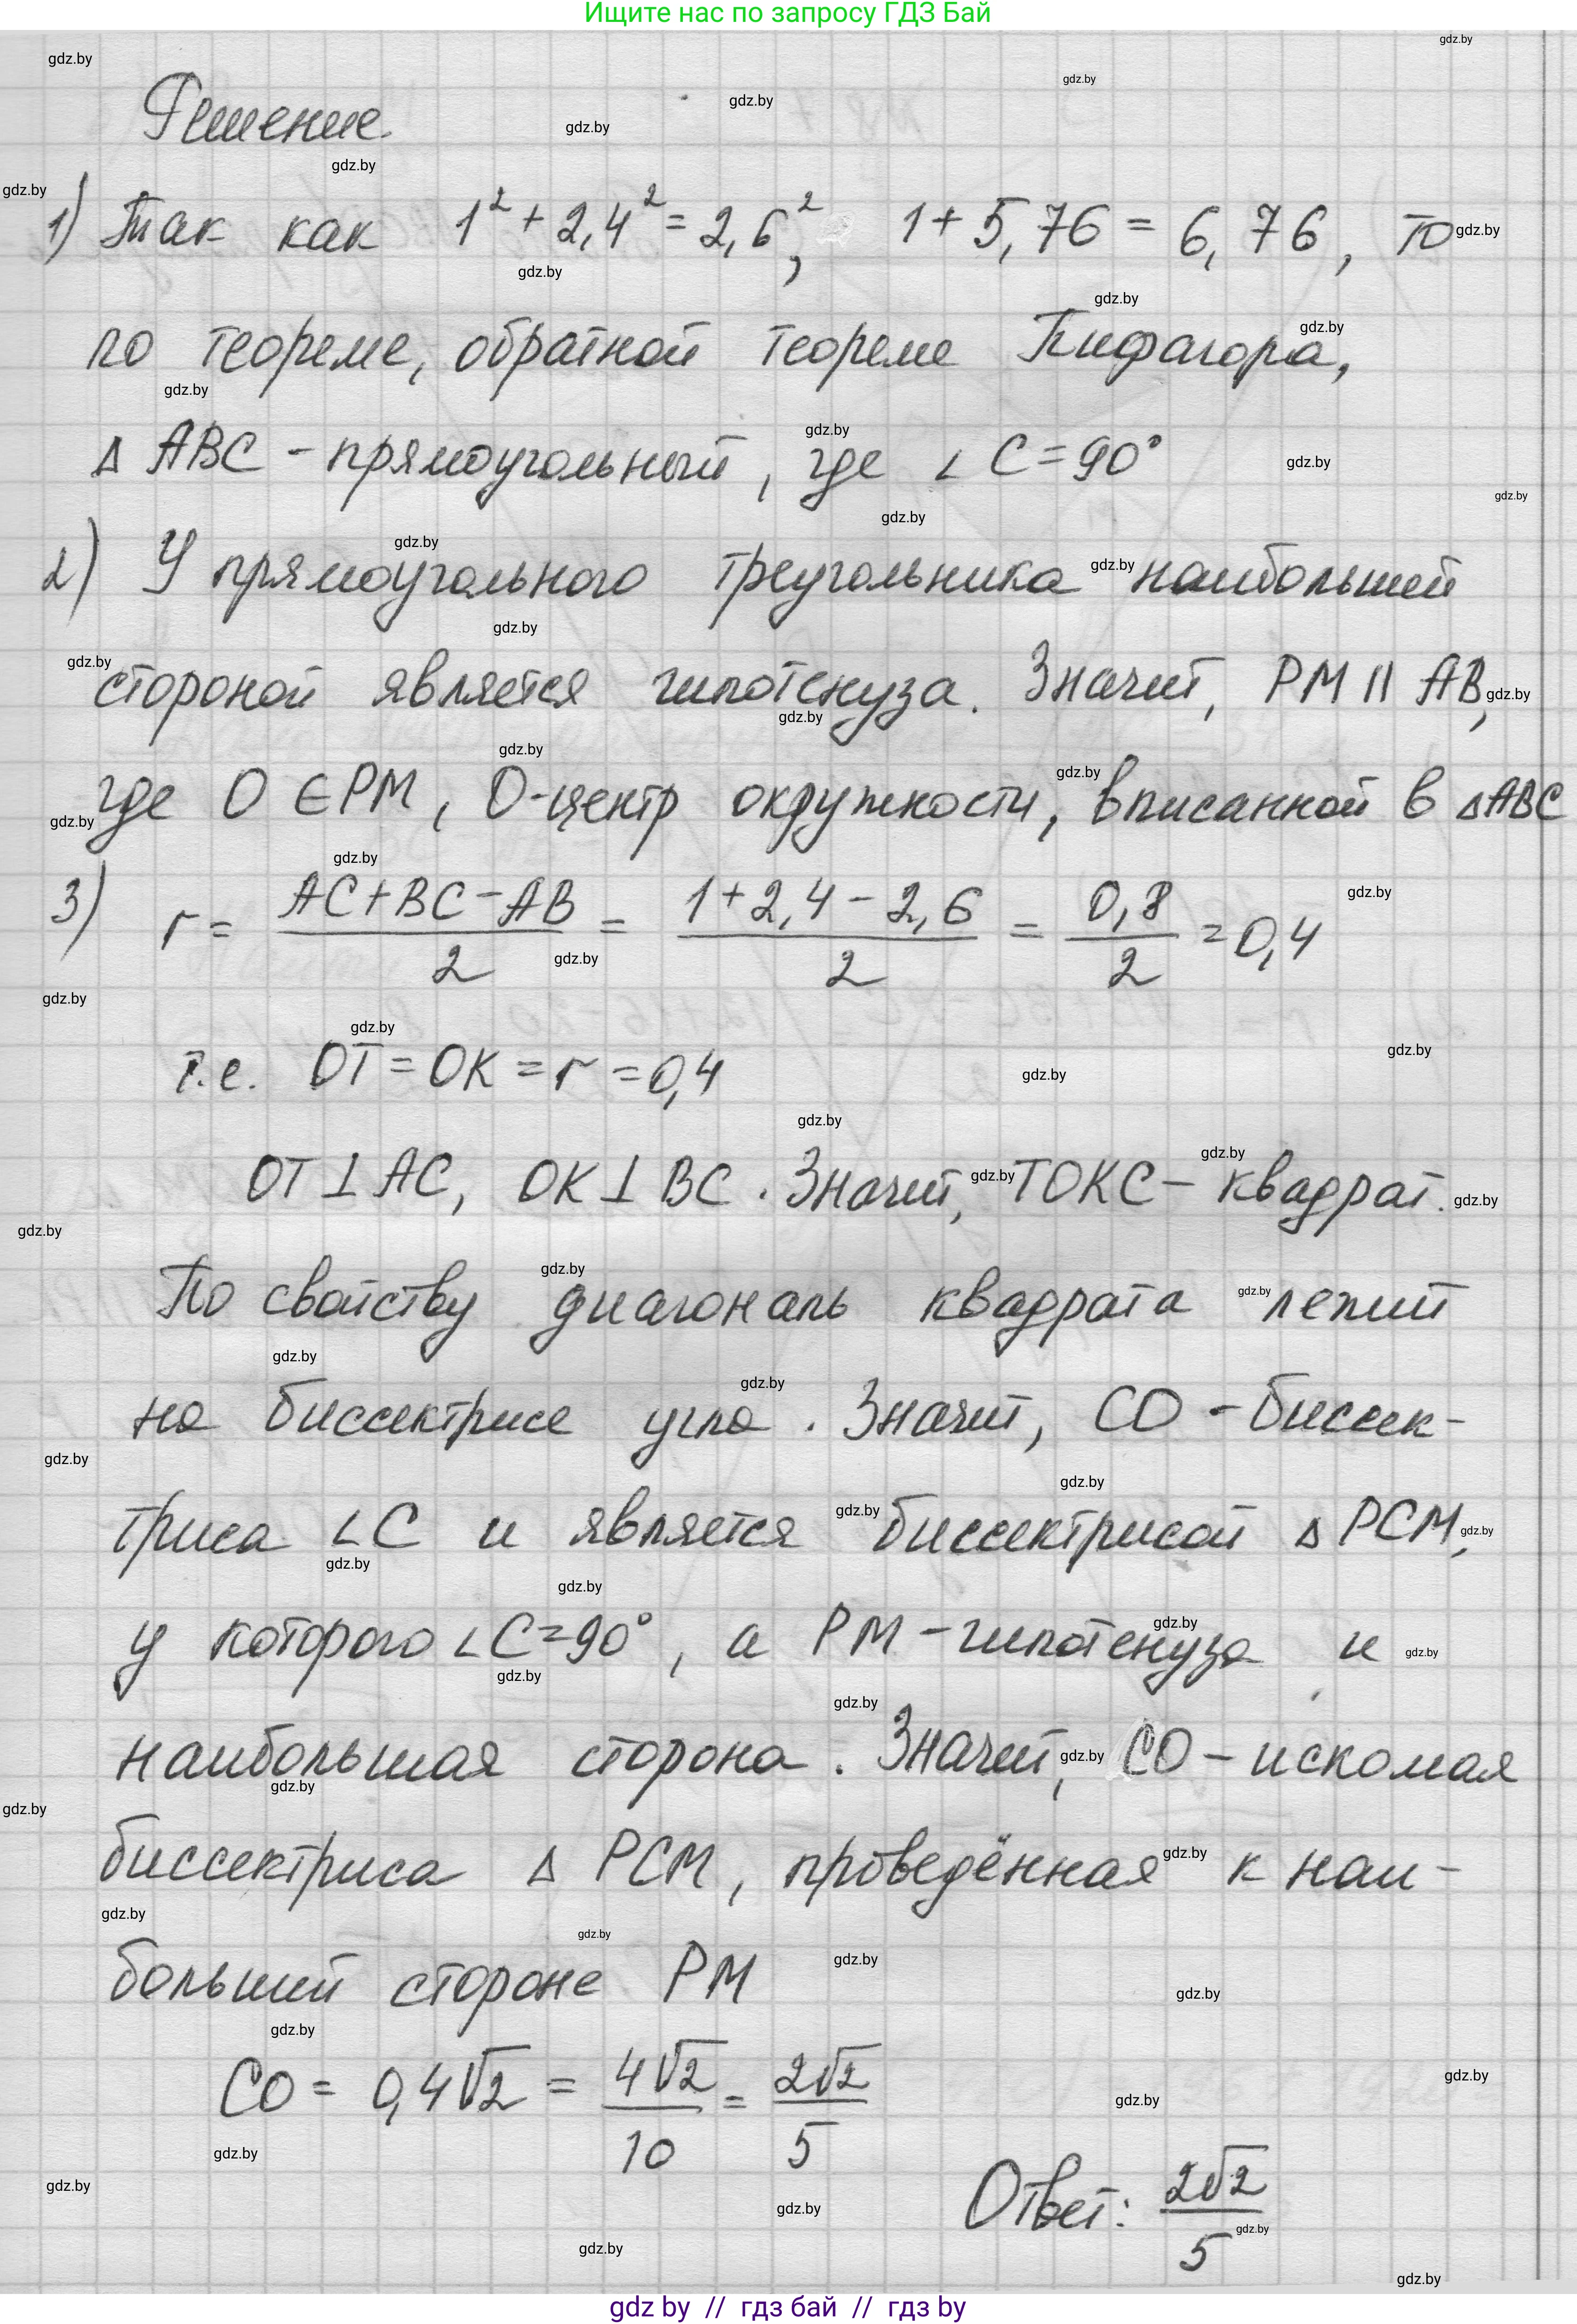 Ищите нас по запросу ГДЗ Бай
Решение
1) Так как 1² + 2,4² = 2,6², 1 + 5,76 = 6,76, то
по теореме, обратной теореме Пифагора,
Δ ABC - прямоугольный, где ∠ C = 90°
2) У прямоугольного треугольника наибольшей
стороной является гипотенуза. Значит, PM || AB,
где O ∈ PM, O-центр окружности, вписанной в ΔABC
3) r = (AC + BC - AB)/2 = (1 + 2,4 - 2,6)/2 = 0,8/2 = 0,4
т.е. OT = OK = r = 0,4
OT ⊥ AC, OK ⊥ BC. Значит, TOKC - квадрат.
По свойству диагональ квадрата лежит
на биссектрисе угла. Значит, CO - биссек-
триса ∠C и является биссектрисой Δ PCM,
у которого ∠C = 90°, а PM - гипотенуза и
наибольшая сторона. Значит, CO - искомая
биссектриса Δ PCM, проведённая к наи-
больший стороне PM
CO = 0,4√2 = 4√2/10 = 2√2/5
Ответ: 2√2/5
gdz by // гдз бай // гдз by